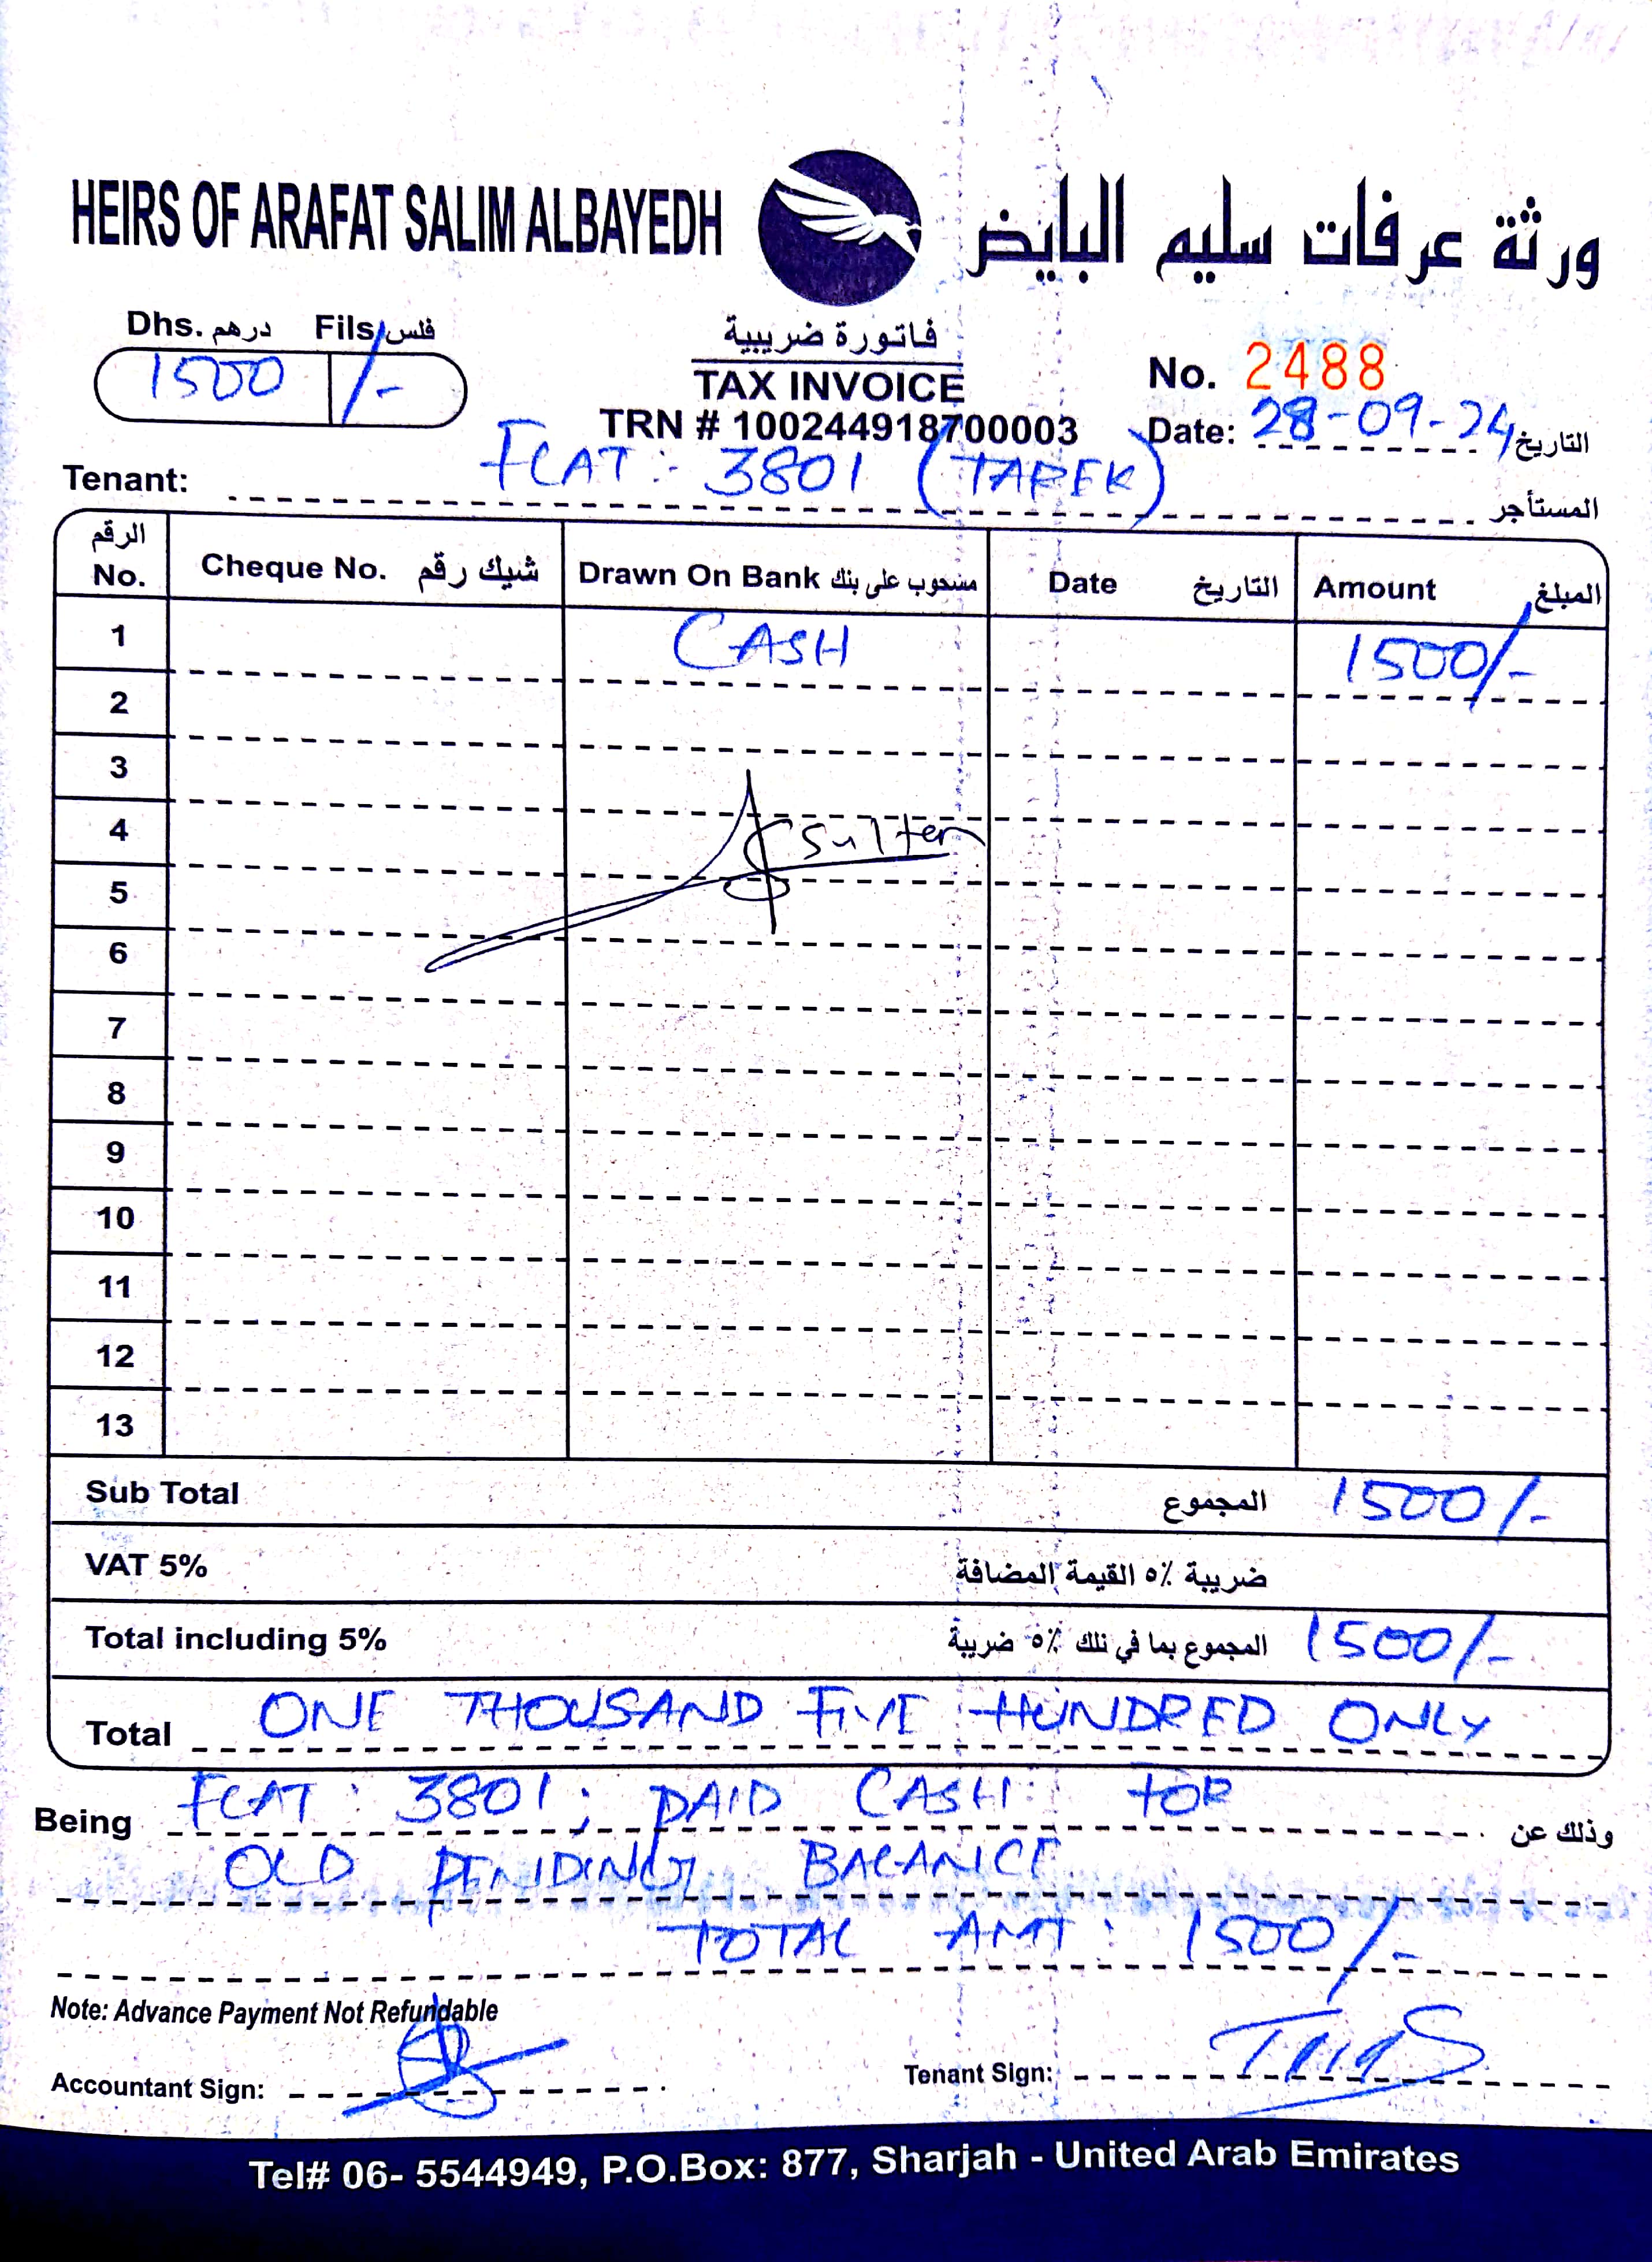 HEIRS OF ARAFAT SALIM ALBAYEDH ورثة عرفات سليم البايض
Dhs. درهم Fils فلس
1500 /-
فاتورة ضريبية
TAX INVOICE
TRN # 100244918700003
No. 2488
Date: 28-09-24 التاريخ
Tenant: FLAT :- 3801 (TAREK) المستأجر
الرقم No. Cheque No. شيك رقم Drawn On Bank مسحوب على بنك Date التاريخ Amount المبلغ
1 CASH 1500/-
2
3
4 Sulten
5
6
7
8
9
10
11
12
13
Sub Total المجموع 1500/-
VAT 5% ضريبة ٥٪ القيمة المضافة
Total including 5% المجموع بما في ذلك ٥٪ ضريبة 1500/-
Total ONE THOUSAND FIVE HUNDRED ONLY
Being FLAT : 3801; PAID CASH FOR وذلك عن
OLD PENDING BALANCE
TOTAL AMT : 1500/-
Note: Advance Payment Not Refundable
Accountant Sign: Tenant Sign:
Tel# 06- 5544949, P.O.Box: 877, Sharjah - United Arab Emirates